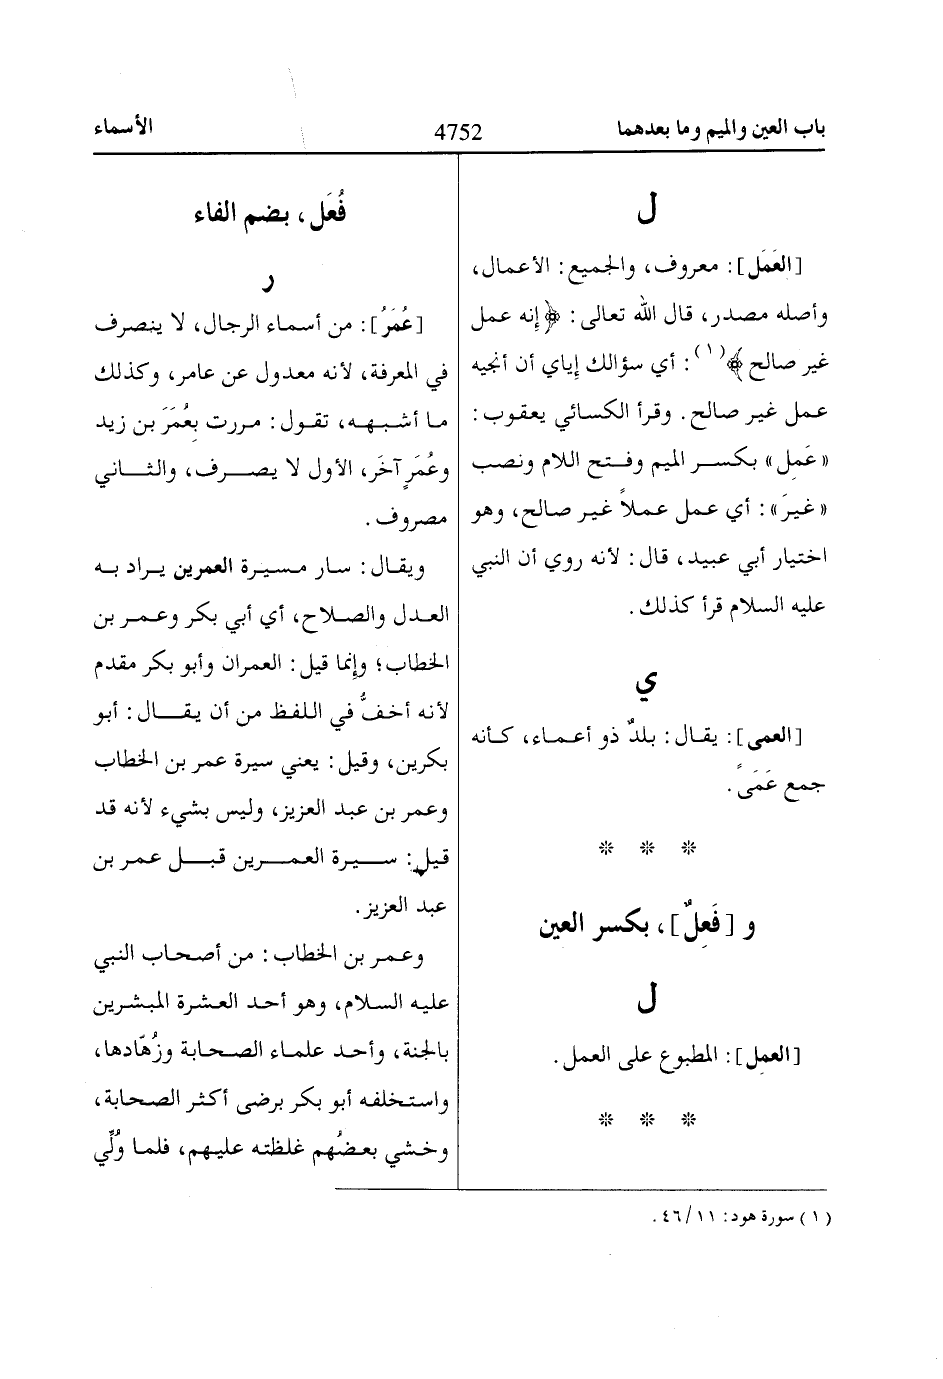 باب العين والميم وما بعدهما
4752
الأسماء
ل
[العَمَل]: معروف، والجميع: الأعمال،
وأصله مصدر، قال الله تعالى: ﴿إنه عمل
غير صالح﴾(١): أي سؤالك إياي أن أنجيه
عمل غير صالح. وقرأ الكسائي يعقوب:
«عَمِل» بكسر الميم وفتح اللام ونصب
«غيرَ»: أي عمل عملاً غير صالح، وهو
اختيار أبي عبيد، قال: لأنه روي أن النبي
عليه السلام قرأ كذلك.
ي
[العمى]: يقال: بلدٌ ذو أعماء، كأنه
جمع عَمَىً.
* * *
و [فَعِلٌ]، بكسر العين
ل
[العمِل]: المطبوع على العمل.
* * *
فُعَل، بضم الفاء
ر
[عُمَرُ]: من أسماء الرجال، لا ينصرف
في المعرفة، لأنه معدول عن عامر، وكذلك
ما أشبهه، تقول: مررت بعُمَرَ بن زيد
وعُمَرٍ آخَر، الأول لا يصرف، والثاني
مصروف.
ويقال: سار مسيرة العمرين يراد به
العدل والصلاح، أي أبي بكر وعمر بن
الخطاب؛ وإنما قيل: العمران وأبو بكر مقدم
لأنه أخفُّ في اللفظ من أن يقال: أبو
بكرين، وقيل: يعني سيرة عمر بن الخطاب
وعمر بن عبد العزيز، وليس بشيء لأنه قد
قيل: سيرة العمرين قبل عمر بن
عبد العزيز.
وعمر بن الخطاب: من أصحاب النبي
عليه السلام، وهو أحد العشرة المبشرين
بالجنة، وأحد علماء الصحابة وزُهّادها،
واستخلفه أبو بكر برضى أكثر الصحابة،
وخشي بعضُهم غلظته عليهم، فلما وُلِّي
(١) سورة هود: ١١/ ٤٦.